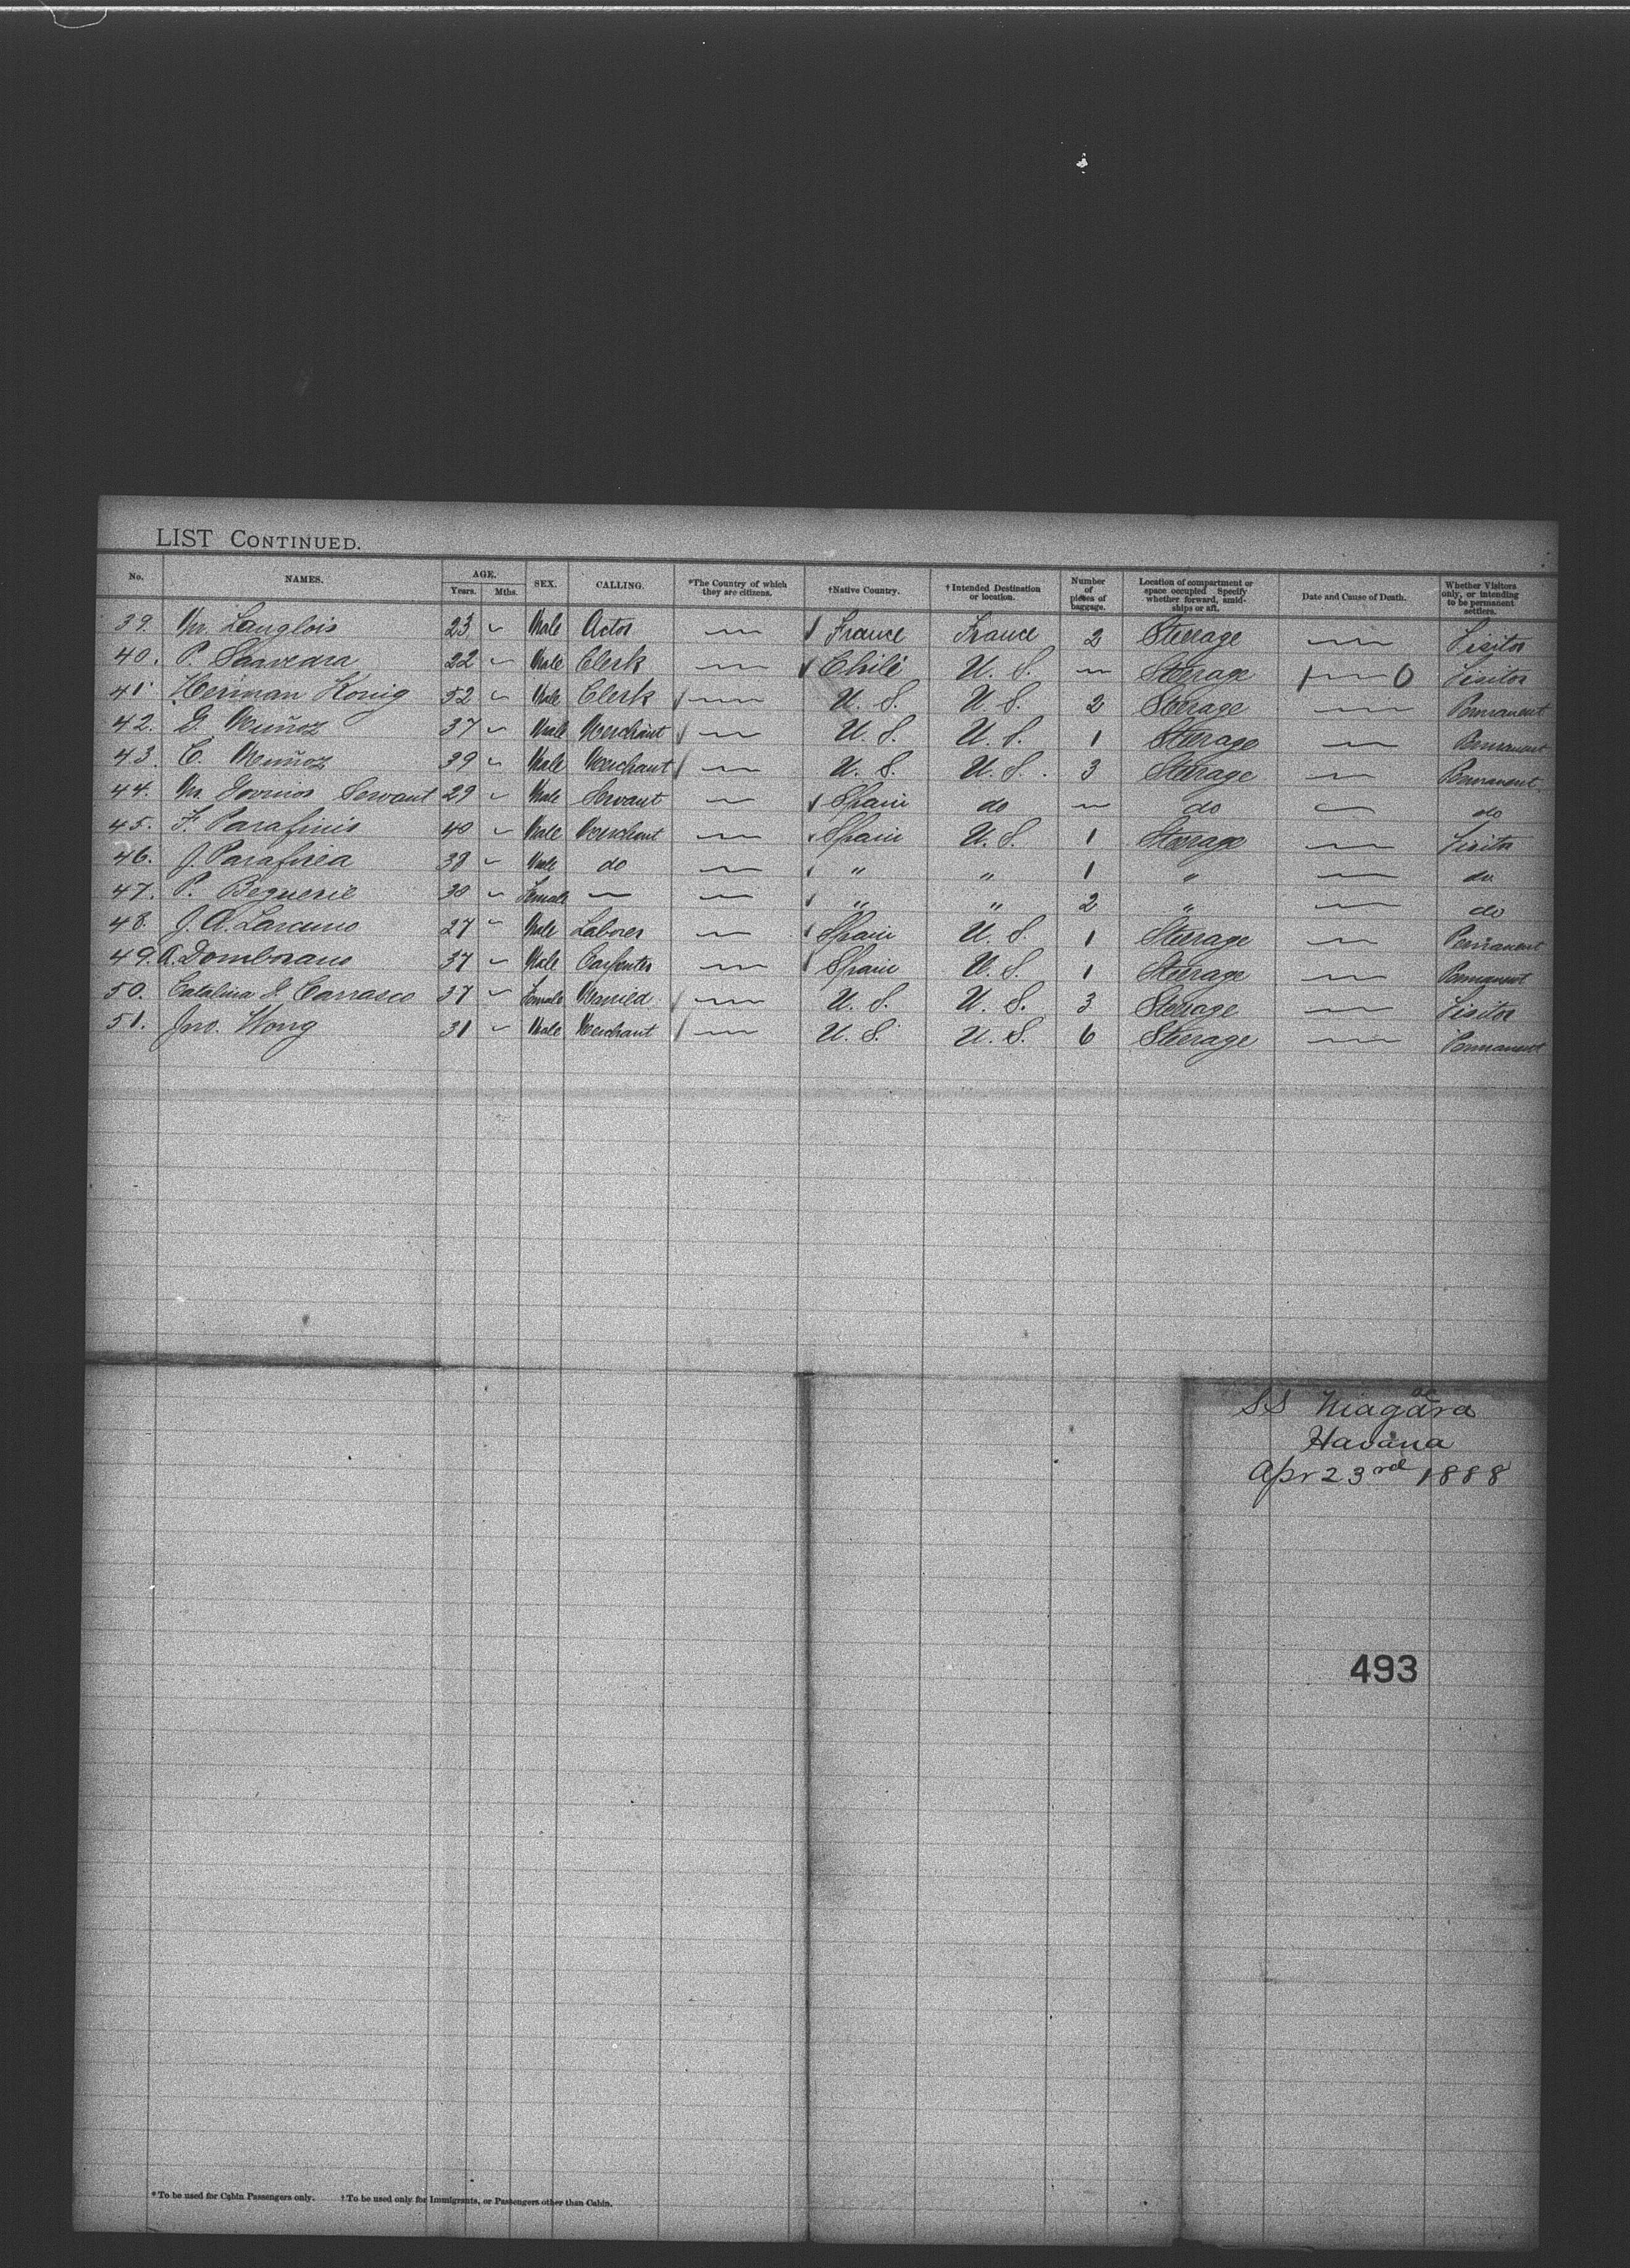 LIST CONTINUED.
No. NAMES. AGE. Years. Mths. SEX. CALLING. *The Country of which they are citizens. †Native Country. †Intended Destination or location. Number of pieces of baggage. Location of compartment or space occupied Specify whether forward, amid-ships or aft. Date and Cause of Death. Whether Visitors only, or intending to be permanent settlers.
39. Mr Langlois 23 Male Actor France France 2 Steerage Visitor
40. P. Saavedra 22 Male Clerk Chili U. S. Steerage Visitor
41 Herman Konig 52 Male Clerk U. S. U. S. 2 Steerage Permanent
42. G. Muñoz 37 Male Merchant U. S. U. S. 1 Steerage Permanent
43. C. Muñoz 39 Male Merchant U. S. U. S. 3 Steerage Permanent
44. Mr Servant 29 Male Servant Spain do do do
45. F. Parafinis 40 Male Merchant Spain U. S. 1 Steerage Visitor
46. J. 38 Male do " " 1 " do
47. P. Beguerie 30 Female " " 2 " do
48. J. A. 27 Male Laborer Spain U. S. 1 Steerage Permanent
49. A. 37 Male Carpenter Spain U. S. 1 Steerage Permanent
50. Catalina Carrasco 37 Female Married U. S. U. S. 3 Steerage Visitor
51. Jno. Wong 31 Male Merchant U. S. U. S. 6 Steerage Permanent
SS Niagara
Havana
Apr 23rd 1888
493
* To be used for Cabin Passengers only. † To be used only for Immigrants, or Passengers other than Cabin.